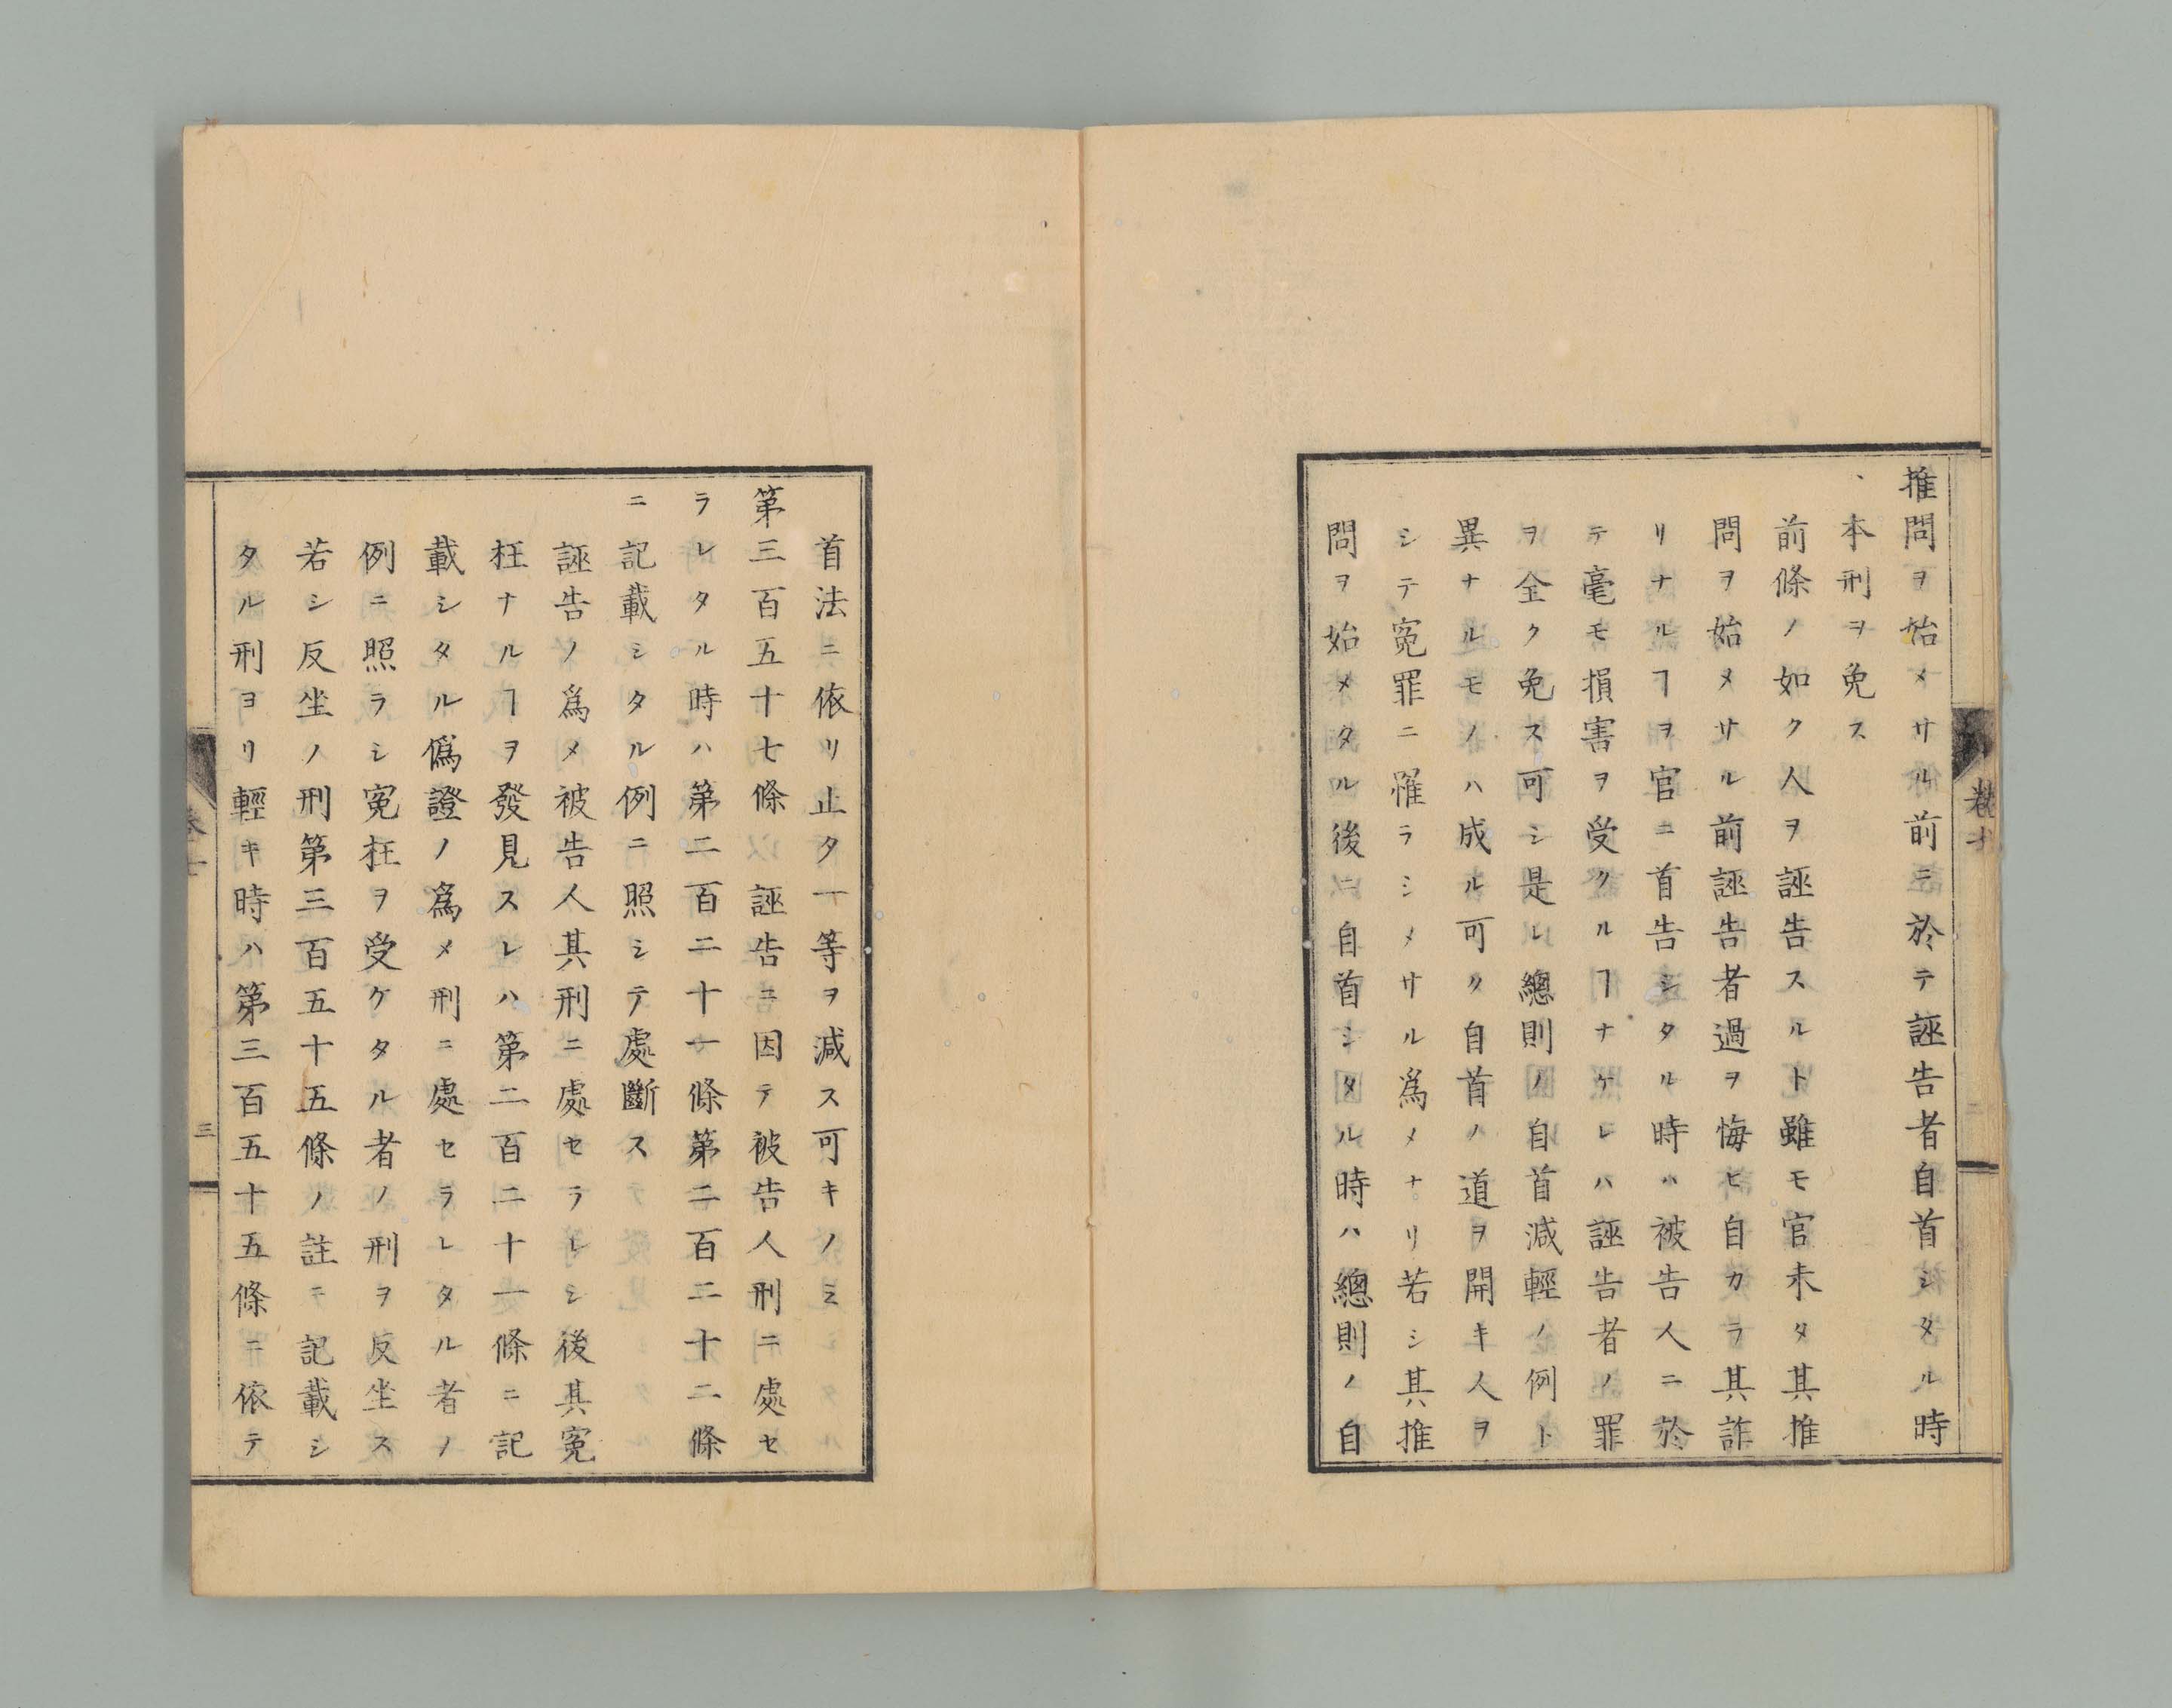 推問ヲ始メサル前ニ於テ誣告者自首シタル時
、本刑ヲ免ス
前條ノ如ク人ヲ誣告スルト雖モ官未タ其推
問ヲ始メサル前誣告者過ヲ悔ヒ自カラ其詐
リナルヿヲ官ニ首告シタル時ハ被告人ニ於
テ毫モ損害ヲ受クルヿナケレハ誣告者ノ罪
ヲ全ク免ス可シ是レ總則ノ自首減輕ノ例ト
異ナルモノハ成ル可ク自首ノ道ヲ開キ人ヲ
シテ冤罪ニ罹ラシメサル爲メナリ若シ其推
問ヲ始メタル後ニ自首シタル時ハ總則ノ自
首法ニ依リ止タ一等ヲ減ス可キノミ
第三百五十七條 誣告ニ因テ被告人刑ニ處セ
ラレタル時ハ第二百二十一條第二百二十二條
ニ記載シタル例ニ照シテ處斷ス
誣告ノ爲メ被告人其刑ニ處セラレシ後其冤
枉ナルヿヲ發見スレハ第二百二十一條ニ記
載シタル僞證ノ爲メ刑ニ處セラレタル者ノ
例ニ照ラシ冤枉ヲ受ケタル者ノ刑ヲ反坐ス
若シ反坐ノ刑第三百五十五條ノ註ニ記載シ
タル刑ヨリ輕キ時ハ第三百五十五條ニ依テ
三